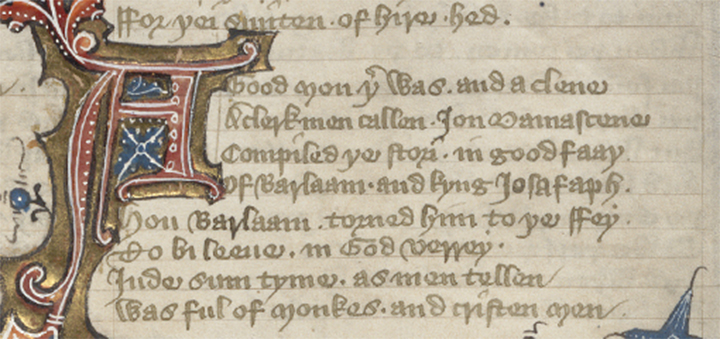 ffor þei smiten · of hire · hed .
A Good mon þͭ was · and a clene
A clerk men callen · Jon Damascene
Compiled þe stori · in good faay
Of Barlaam · and kyng Josafaph .
Hou Barlaam · torned him to þe ffey ·
To bi leeue · in God verrey ·
Inde sum tyme · as men tellen
Was ful of monkes · and cristen men